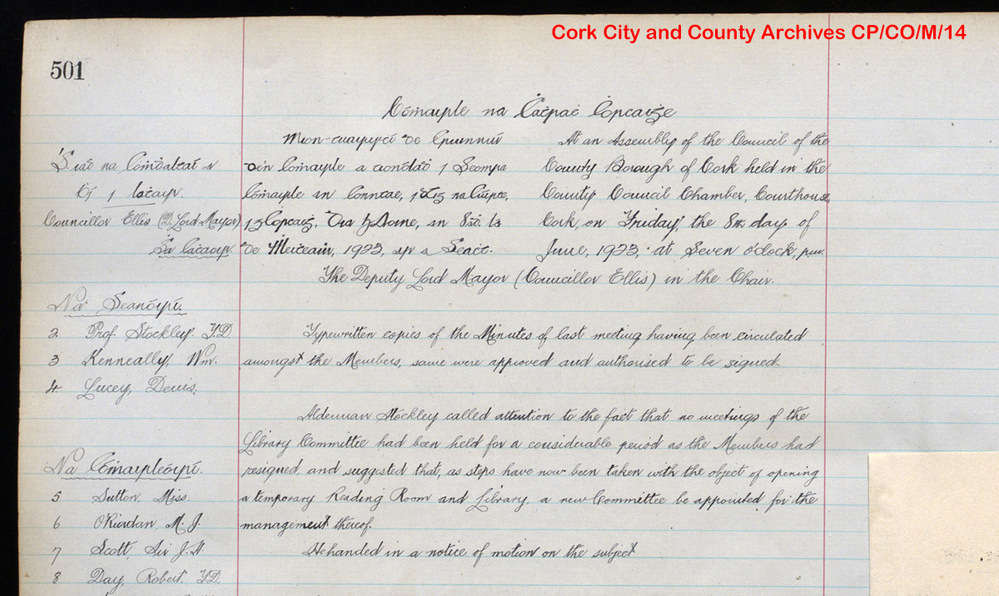 Cork City and County Archives CP/CO/M/14
501
Cómairle na Caṫraċ Corcaiġe
Mion-cuairpċe de Cruinniú
At an Assembly of the Council of the
County Borough of Cork held in the
County Council Chamber, Courthouse,
Cork, on Friday, the 8th. day of
de Meiṫeaṁ, 1923, a Seaċt.
June, 1923, at Seven o'clock, p.m.
Councillor Ellis (D. Lord Mayor)
The Deputy Lord Mayor (Councillor Ellis) in the Chair.
Na Seanóirí.
2 Prof. Stockley T.D.
3 Kenneally, Wm.
4 Lucey, Denis.
Typewritten copies of the Minutes of last meeting having been circulated
amongst the Members, same were approved and authorised to be signed.
Alderman Stockley called attention to the fact that no meetings of the
Library Committee had been held for a considerable period as the Members had
resigned, and suggested that, as steps have now been taken with the object of opening
a temporary Reading Room and Library, a new Committee be appointed for the
management thereof.
He handed in a notice of motion on the subject
Na Cómairleoirí.
5 Sutton, Miss.
6 O'Riordan, M. J.
7 Scott, Sir J. H.
8 Day, Robert. T.D.